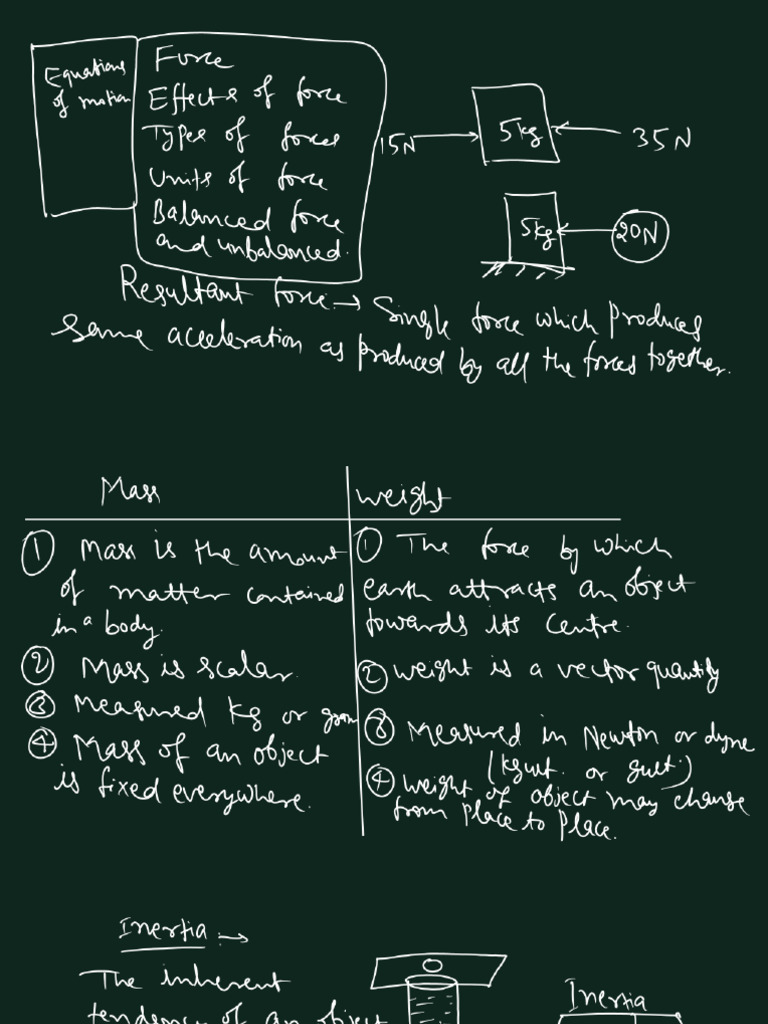 Equations
of motion
Force
Effects of force
Types of forces
Units of force
Balanced force
and unbalanced.
15N
5kg
35N
5kg
20N
Resultant force → Single force which produces
same aceleration as produced by all the forces together.
Mass
weight
① Mass is the amount
of matter contained
in a body.
② Mass is scalar.
③ Measured kg or gram
④ Mass of an object
is fixed everywhere.
① The force by which
earth attracts an object
towards its centre.
② weight is a vector quantity
③ Measured in Newton or dyne
(kgwt. or gwt.)
④ weight of object may change
from place to place.
Inertia →
The inherent
tendency of an object
Inertia